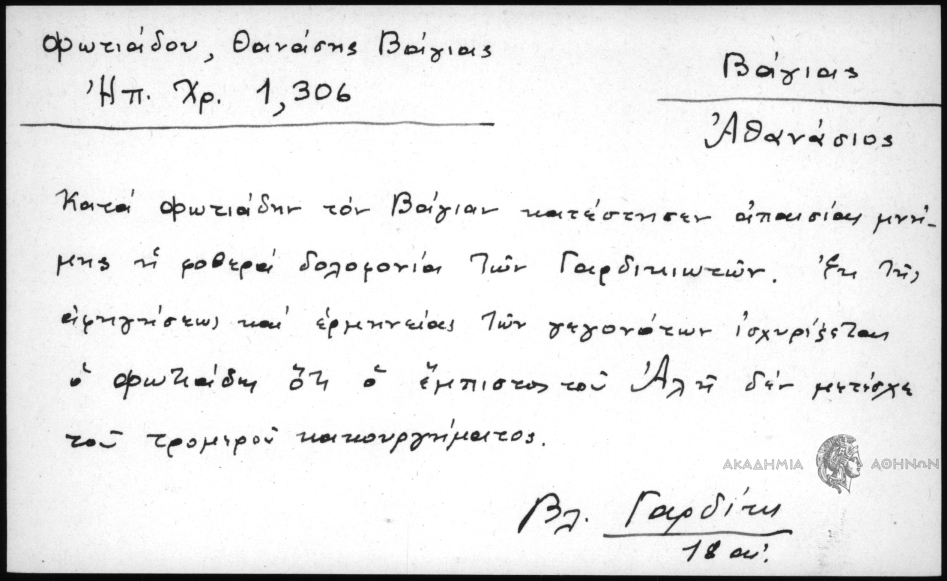 Φωτιάδου, Θανάσης Βάγιας
Ἠπ. Χρ. 1,306
Βάγιας
Ἀθανάσιος
Κατά Φωτιάδην τόν Βάγιαν κατέστησεν ἀπαισίας μνή-
μης ἡ φοβερά δολοφονία τῶν Γαρδικιωτῶν. Ἐκ τῆς
ἀφηγήσεως καί ἑρμηνείας τῶν γεγονότων ἰσχυρίζεται
ὁ Φωτιάδης ὅτι ὁ ἔμπιστος τοῦ Ἀλῆ δέν μετέσχε
τοῦ τρομεροῦ κακουργήματος.
ΑΚΑΔΗΜΙΑ ΑΘΗΝΩΝ
Βλ. Γαρδίκι